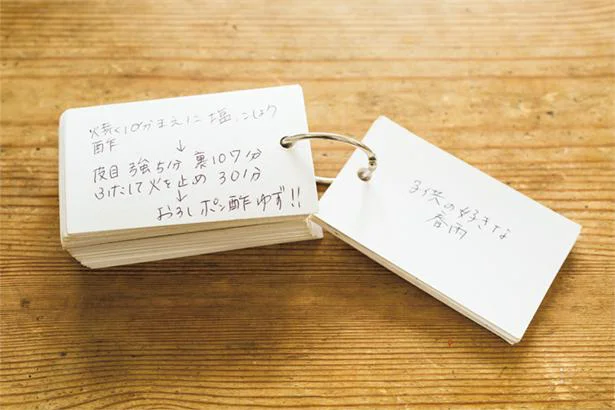 焼く10分まえに塩こしょう
酢
↓
皮目 強5分 裏10分
ふたして火を止め 30分
↓
おろしポン酢ゆず!!
子供の好きな
春雨